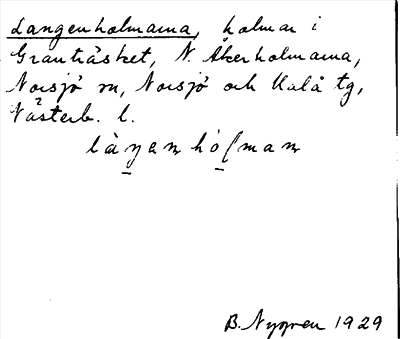 Langenholmarna, holmar i
Granträsket, N. Åkerholmarna,
Norsjö sn, Norsjö och Malå tg,
Västerb. l.
làŋenhólman
B. Nygren 1929